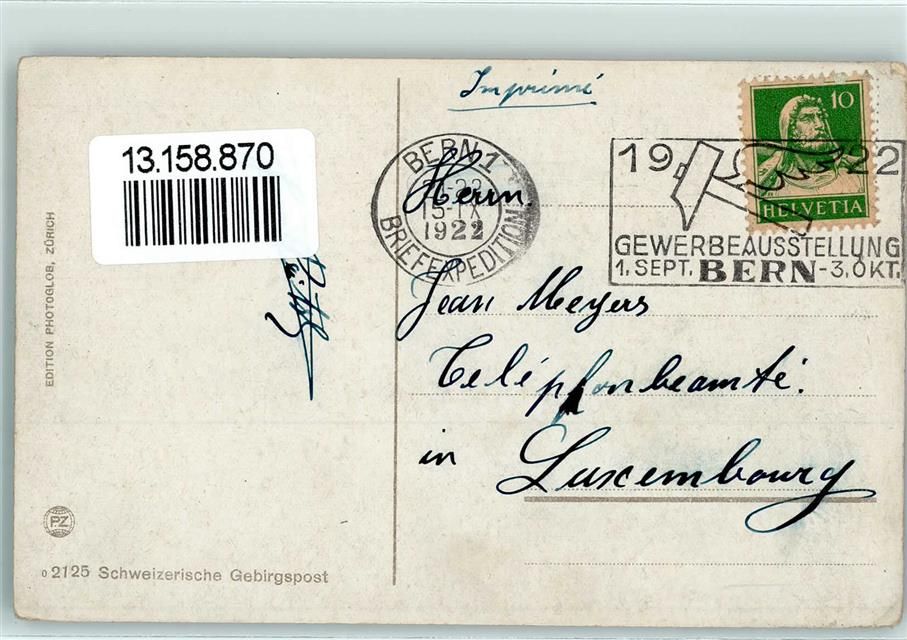 Imprimé
13.158.870
BERN 1
15-IX
1922
BRIEFEXPEDITION
10
HELVETIA
19 22
GEWERBEAUSSTELLUNG
1. SEPT. BERN - 3. OKT.
Herrn.
Jean Meyers
Teléphonbeamté.
in Luxembourg
EDITION PHOTOGLOB, ZÜRICH
PZ
0 2125 Schweizerische Gebirgspost